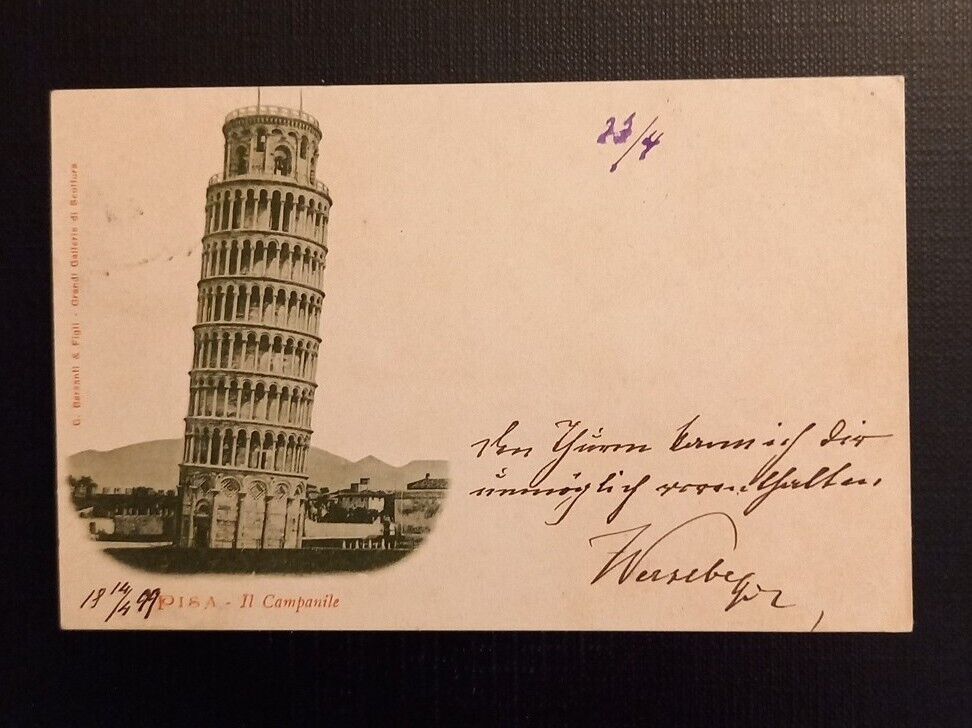 23/4
G. Barsanti & Figli - Grandi Gallerie di Scultura
den Thurm kann ich dir
unmöglich vorenthalten.
18 14/4 99
PISA - Il Campanile